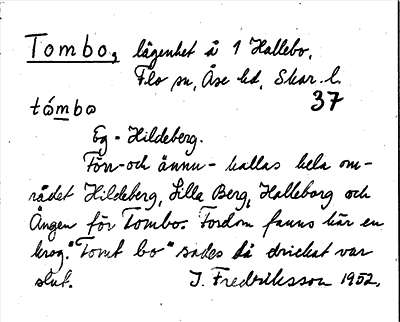 Tombo, lägenhet å 1 Hallebo,
Flo sn, Åse hd, Skar. l.
37
tómbo
Eg - Hildeberg.
Förr- och ännu - kallas hela om-
rådet Hildeberg, Lilla Berg, Halleborg och
Ängen för Tombo. Fordom fanns här en
krog. "Tomt bo" sades då drickat var
slut. J. Fredriksson 1952.